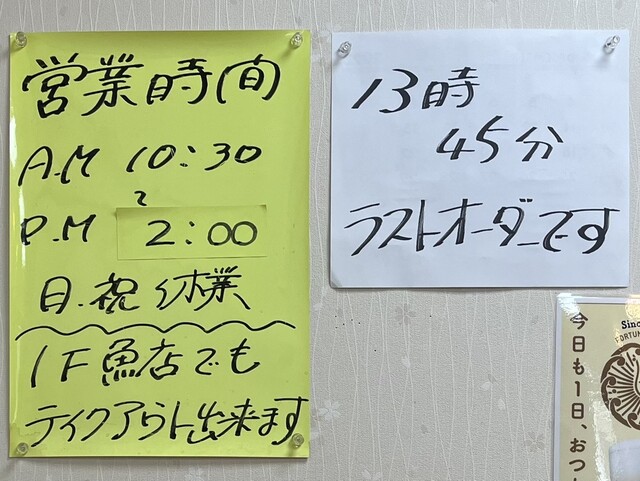 営業時間
A.M 10:30
〜
P.M 2:00
日.祝 休業
1F魚店でも
テイクアウト出来ます
13時
45分
ラストオーダーです
Since
FORTUN
今日も1日、おつ